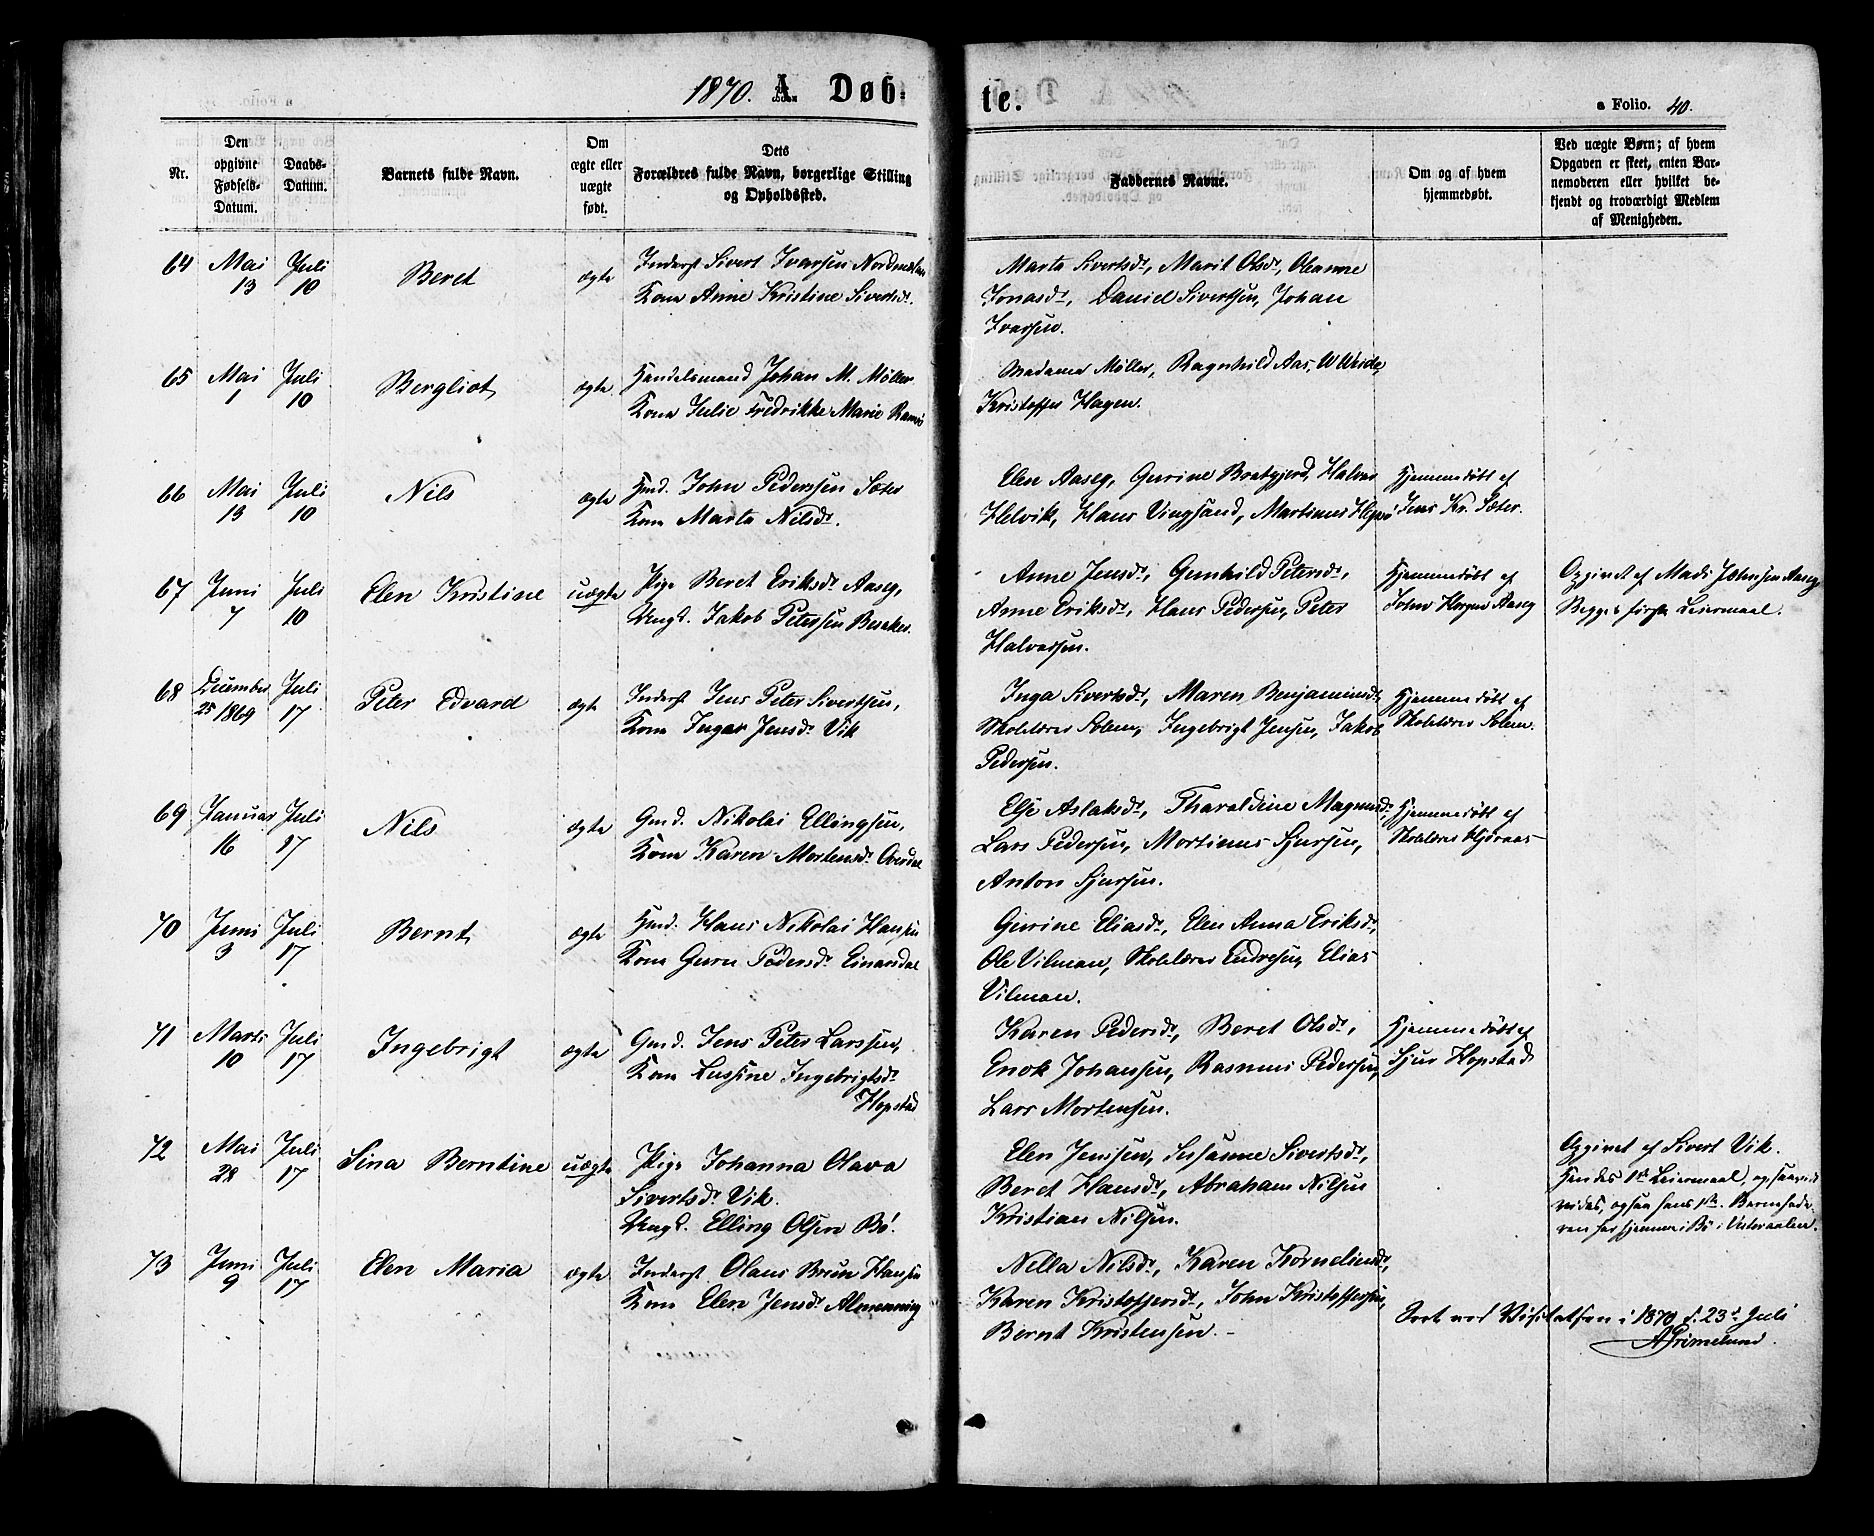 1870. A. Døb-
te.
a Folio. 40.
Nr.
Den opgivne Fødsels-Datum.
Daabs-Datum.
Barnets fulde Navn.
Om ægte eller uægte født.
Dets Forældres fulde Navn, borgerlige Stilling og Opholdssted.
Faddernes Navne.
Om og af hvem hjemmedøbt.
Ved uægte Børn; af hvem Opgaven er skeet, enten Barnemoderen eller hvilket bekjendt og troværdigt Medlem af Menigheden.
64 Mai 13 Juli 10 Beret ægte
Inderst Sivert Ivarsen
Kone Anne Kristine Sivertsdr.
Marta Sivertsdr, Marit Olsdr, Oleanne
Jonasdr, Daniel Sivertsen, Johan
Ivarsen.
65 Mai 1 Juli 10 Bergliot ægte
Handelsmand Johan M. Møller
Kone Julie Fredrikke Marie
Madame Møller, Ragnhild Aas,
Kristoffer Hagen.
66 Mai 13 Juli 10 Nils ægte
Gmd. John Pedersen Sæter
Kone Marta Nilsdr.
Elen Aaseg, Gurine Bratgjerd, Halvar
Helvik, Hans Vingsand, Martinus
Hjemmedøbt af
Jens Kr. Sæter.
67 Juni 7 Juli 10 Elen Kristine uægte
Pige Beret Eriksdr Aaseg,
Ungk. Jakob Petersen Besaker.
Anne Jensdr, Gunhild Petersdr,
Anne Eriksdr, Hans Pedersen, Peter
Halvarsen.
Hjemmedøbt af
John Aaseg
Opgivet af Mads Johnsen Aaseg
Begges første Leiermaal.
68 December 25 1869 Juli 17 Peter Edvard ægte
Inderst Jens Peter Sivertsen,
Kone Inger Jensdr Vik
Inga Sivertsdr, Maren Benjaminsdr,
Skolelærer Solem, Ingebrigt Jensen, Jakob
Pedersen.
Hjemmedøbt af
Skolelærer Solem.
69 Januar 16 Juli 17 Nils ægte
Gmd. Nikolai Ellingsen,
Kone Karen Mortensdr
Else Aslaksdr, Tharaldine Magnusdr,
Lars Pedersen, Mortinus Sjursen,
Anton Sjursen.
Hjemmedøbt af
Skolelærer
70 Juni 3 Juli 17 Bernt ægte
Gmd. Hans Nikolai Hansen
Kone Guru Pedersdr Einarsdal
Gurine Eliasdr, Elen Anna Eriksdr,
Ole Vilman, Skolelærer Endresen, Elias
Vilman.
71 Marts 10 Juli 17 Ingebrigt ægte
Gmd. Jens Peter Larssen,
Kone Lussine Ingebrigtsdr
Hopstad
Karen Pedersdr, Beret Olsdr,
Enok Johansen, Rasmus Pedersen,
Lars Mortensen.
Hjemmedøbt af
Sjur Hopstad
72 Mai 28 Juli 17 Sina Berntine uægte
Pige Johanna Olava
Sivertsdr Vik.
Ungk. Elling Olsen Bö.
Elen Jensen, Susanne Sivertsdr,
Beret Hansdr, Abraham Nilsen
Kristian Nilsen.
Opgivet af Sivert Vik.
Hendes 1ste Leiermaal, og saavidt
vides, ogsaa hans 1ste. Barnefade-
ren har hjemme i Bö i Vesteraalen.
73 Juni 9 Juli 17 Elen Maria ægte
Inderst Olaus Bruun Hansen
Kone Elen Jensdr Almenning
Nella Nilsdr, Karen Korneliusdr,
Karen Kristoffersdr, John Kristoffersen,
Bernt Kristensen.
Seet ved Visitatsen i 1870 d. 23d Juli
AGrimelund.